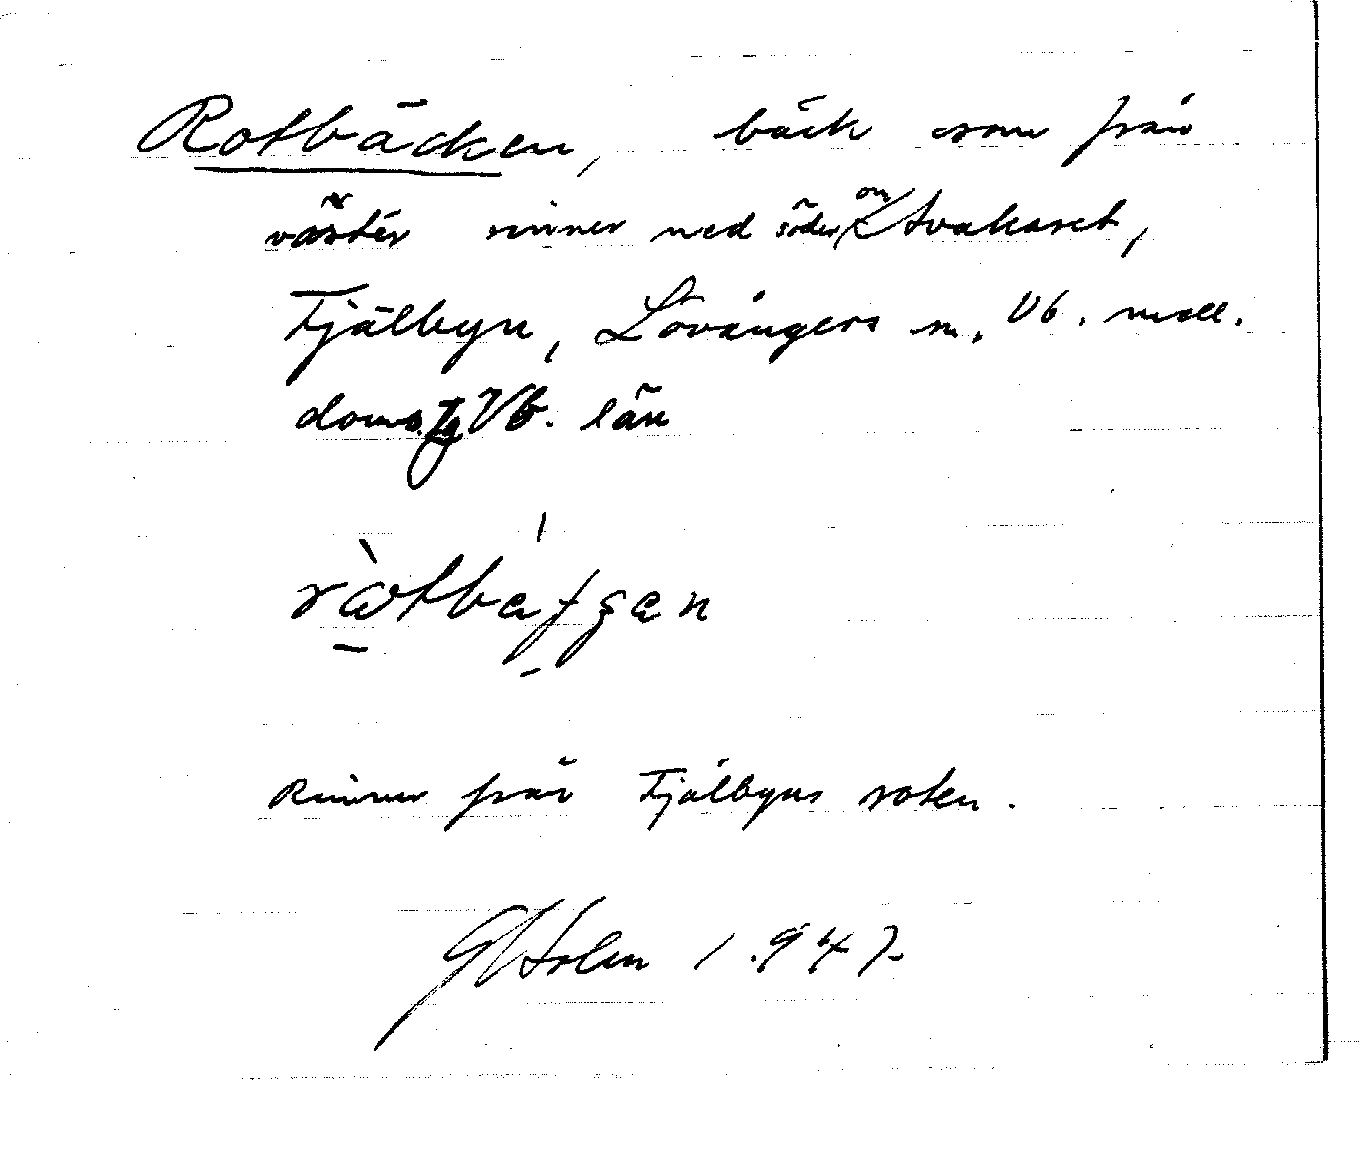 Rotbäcken, bäck som från
väster rinner ned söder om
Fjälbyn, Lövångers sn, Vb. mell.
doms. Vb. län
Rinner från Fjälbyns roten.
G Holm 1.947